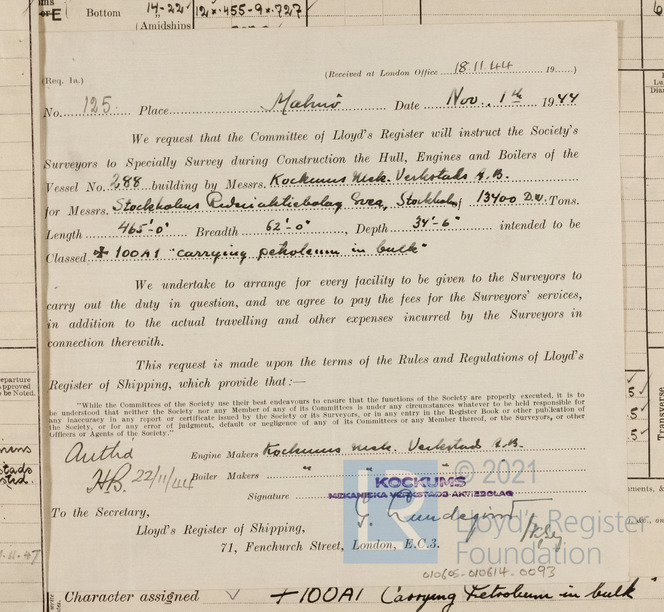 E Bottom 14-22 12 x .455-9 x .727
(Amidships
(Received at London Office 18.11.44 19 )
(Req. 1a.)
No. 125. Place Malmö Date Nov. 1st 1944
We request that the Committee of Lloyd's Register will instruct the Society's
Surveyors to Specially Survey during Construction the Hull, Engines and Boilers of the
Vessel No. 288 building by Messrs. Kockums Mek. Verkstads A.B.
for Messrs. Stockholms Rederiaktiebolag Svea, Stockholm, 13400 D.W. Tons.
Length 465'-0" Breadth 62'-0" , Depth 34'-6" intended to be
Classed ✠ 100A1 "carrying petroleum in bulk"
We undertake to arrange for every facility to be given to the Surveyors to
carry out the duty in question, and we agree to pay the fees for the Surveyors' services,
in addition to the actual travelling and other expenses incurred by the Surveyors in
connection therewith.
This request is made upon the terms of the Rules and Regulations of Lloyd's
Register of Shipping, which provide that:—
"While the Committees of the Society use their best endeavours to ensure that the functions of the Society are properly executed, it is to
be understood that neither the Society nor any Member of any of its Committees is under any circumstances whatever to be held responsible for
any inaccuracy in any report or certificate issued by the Society or its Surveyors, or in any entry in the Register Book or other publication of
the Society, or for any error of judgment, default or negligence of any of its Committees or any Member thereof, the Surveyors, or other
Officers or Agents of the Society."
Engine Makers Kockums Mek. Verkstads A.B.
Boiler Makers " " "
22/11/44
KOCKUMS
MEKANISKA VERKSTADS AKTIEBOLAG
Signature
To the Secretary,
Lloyd's Register of Shipping,
71, Fenchurch Street, London, E.C.3.
© 2021
Lloyd's Register
Foundation
010605-010614-0093
Character assigned ✓ +100A1 "Carrying Petroleum in bulk"
Transverse